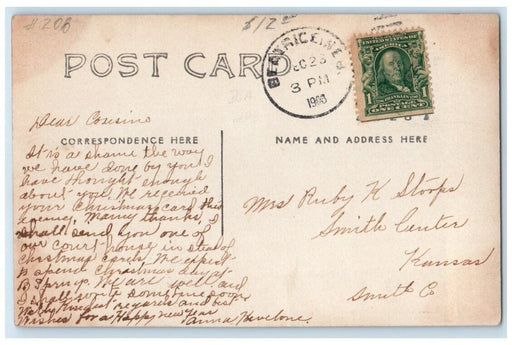 #206
$12
POST CARD
BEATRICE, NEB.
DEC 23
3 PM
1908
UNITED STATES OF AMERICA
1
Dear Cousins
CORRESPONDENCE HERE
NAME AND ADDRESS HERE
It is a shame the way
we have done by you I
have thought enough
about you. We received
your Christmas card this
evening, Many thanks, I
shall send you one of
our court house in stead of
Christmas cards. We expect
to spend Christmas day at
We are well and
I shall send some soon
with kind regards and best
Wishes for a Happy new Year
Anna
Mrs Ruby K Stoops
Smith Center
Kansas
Smith Co